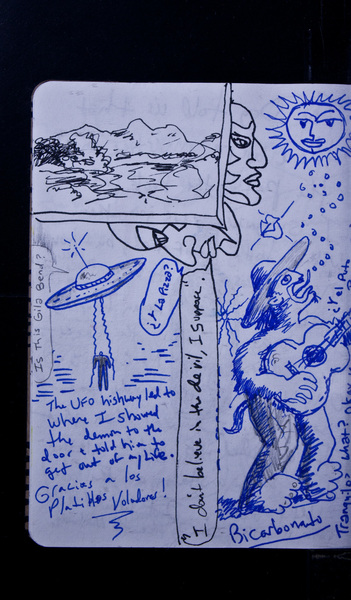 Is This Gila Bend?
¿Y La Pizza?
"I don't believe in the devil, I suppose"
The UFO highway led to
where I showed
the demon to the
door & told him to
get out of my life.
Gracias a los
Platillos Voladores!
Bicarbonato
Tranquilo?
¿Y el